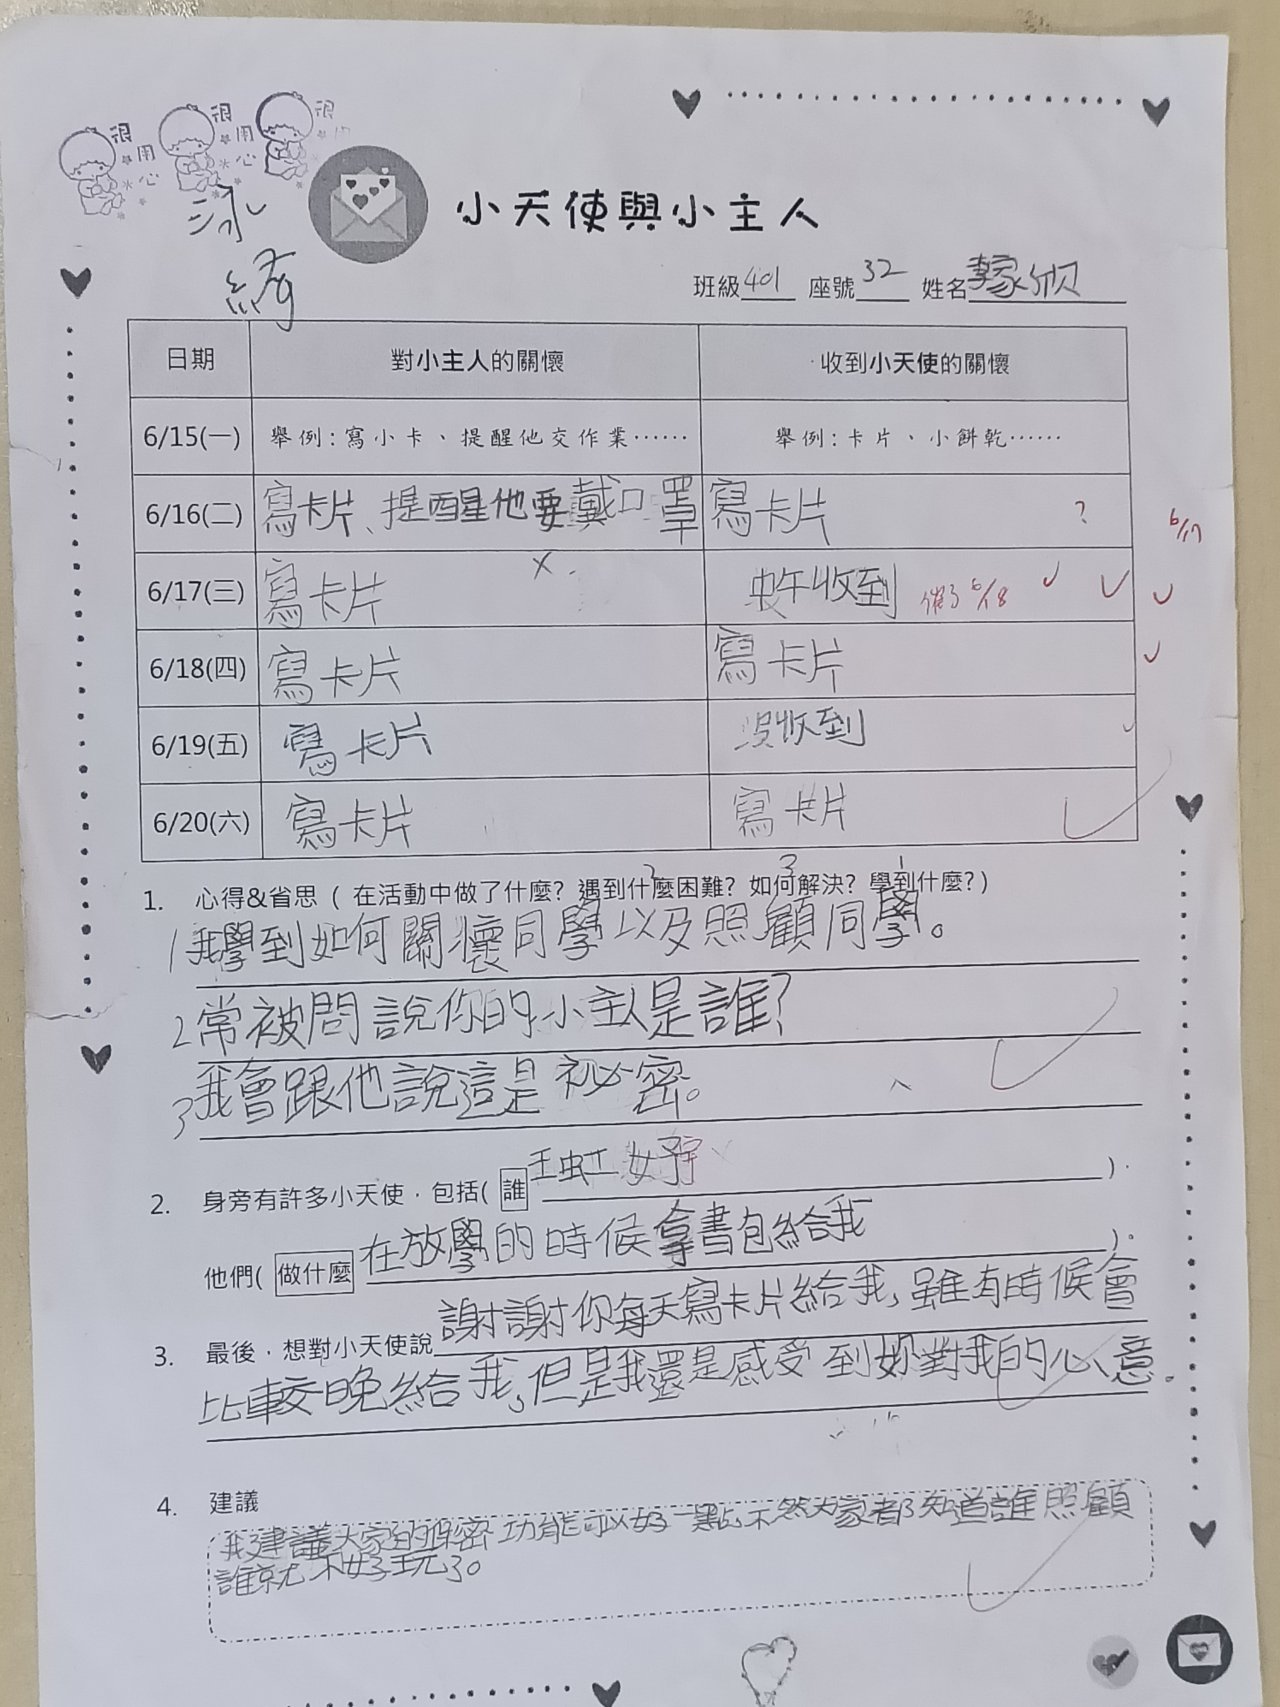 很用心 很用心 很
泳
綺
小天使與小主人
班級401 座號32 姓名
日期 對小主人的關懷 收到小天使的關懷
6/15(一) 舉例:寫小卡、提醒他交作業…… 舉例:卡片、小餅乾……
6/16(二) 寫卡片、提醒他要戴口罩 寫卡片 ? 6/17
6/17(三) 寫卡片 收到 6/18
6/18(四) 寫卡片 寫卡片
6/19(五) 寫卡片 沒收到
6/20(六) 寫卡片 寫卡片
1. 心得&省思 ( 在活動中做了什麼? 遇到什麼困難? 如何解決? 學到什麼?)
2 3 1
1我學到如何關懷同學以及照顧同學。
2常被問說你的小主人是誰?
3我會跟他說這是祕密。
2. 身旁有許多小天使,包括( 誰 王虹 ).
他們( 做什麼 在放學的時候拿書包給我 ).
3. 最後,想對小天使說 謝謝你每天寫卡片給我,雖有時候會
比較晚給我,但是我還是感受到妳對我的心意。
4. 建議
我建議大家的保密功能可以好一點不然大家都知道誰照顧
誰就不好玩了。